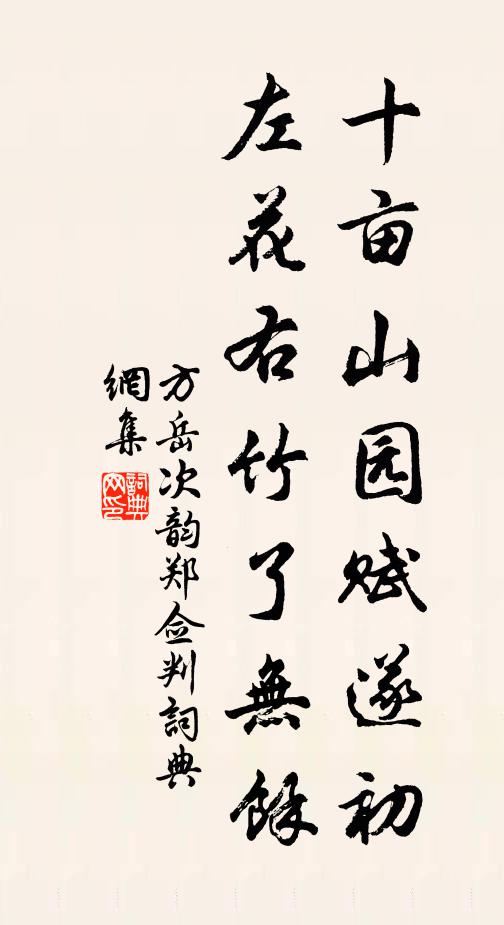 十亩山园赋遂初
左花右竹了無餘
方岳次韵郑佥判詞典
網集
詞典網印